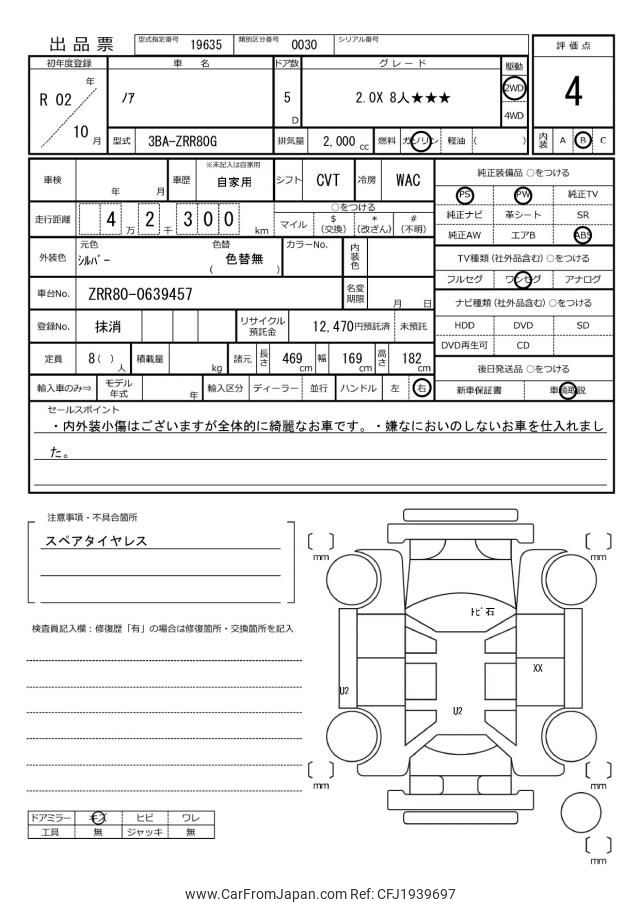 出品票 型式指定番号 19635 類別区分番号 0030 シリアル番号
評価点
4
内装 A B C
初年度登録 車名 ドア数 グレード 駆動
R 02 年 ノア 5 D 2.0X 8人★★★ 2WD
10 月 4WD
型式 3BA-ZRR80G 排気量 2,000 cc 燃料 ガソリン 軽油 ( )
車検 年 月 車歴 ※未記入は自家用 自家用 シフト CVT 冷房 WAC
走行距離 4 万 2 千 3 0 0 km
○をつける
マイル $ (交換) * (改ざん) # (不明)
外装色 元色 シルバー 色替 ( 色替無 ) カラーNo. 内装色
車台No. ZRR80-0639457 名変期限 月 日
登録No. 抹消 リサイクル預託金 12,470円預託済 未預託
定員 8 ( ) 人 積載量 kg 諸元 長さ 469 cm 幅 169 cm 高さ 182 cm
輸入車のみ⇒ モデル年式 年 輸入区分 ディーラー 並行 ハンドル 左 右
純正装備品 ○をつける
PS PW 純正TV
純正ナビ 革シート SR
純正AW エアB ABS
TV種類 (社外品含む) ○をつける
フルセグ ワンセグ アナログ
ナビ種類 (社外品含む) ○をつける
HDD DVD SD
DVD再生可 CD
後日発送品 ○をつける
新車保証書 車輌取説
セールスポイント
・内外装小傷はございますが全体的に綺麗なお車です。・嫌なにおいのしないお車を仕入れまし
た。
注意事項・不具合箇所
スペアタイヤレス
検査員記入欄：修復歴「有」の場合は修復箇所・交換箇所を記入
mm
mm
トビ石
XX
U2
U2
mm
mm
mm
ドアミラー キズ ヒビ ワレ
工具 無 ジャッキ 無
www.CarFromJapan.com Ref: CFJ1939697